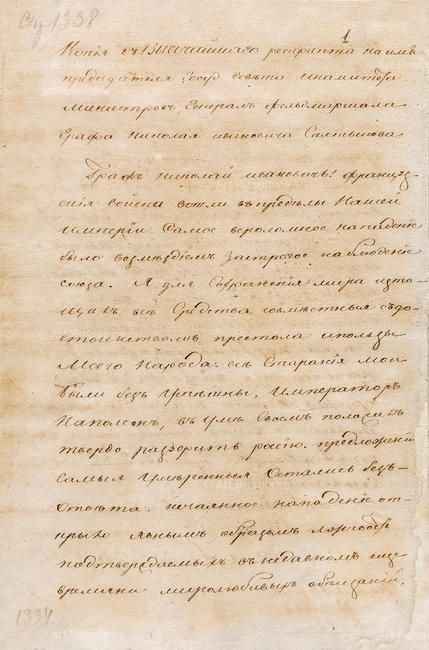 Стр 1338
1
Копія съ Высочайшаго рескрипта на имя
председателя Госуд совѣта икамитета
Министровъ, Генералъ Фельдмаршала
Графа Николая ивановича Салтыкова.
Графъ николай ивановичь! францус-
скія войски вошли въпредѣлы Нашей
Имперіи Самое вероломное нападеніе
было возмездіемъ застрогое наблюденіе
союза. Я для Сохраненія мира исто-
щилъ всѣ Средства совмѣстныя съдо-
стоинствомъ престола ипользы
Моего Народа. всѣ Старанія мои
были безъуспѣшны, Императоръ
Наполеонъ, въумѣ Своемъ положилъ
твердо разорить россію. предложеніи
самыя Умѣренныя Остались безъ-
Отвѣта. нечаянное нападеніе от-
крыло явнымъ образомъ лживость
подтверждаемыхъ въ недавномъ еще
времяни миролюбивыхъ обѣщаній.
1334